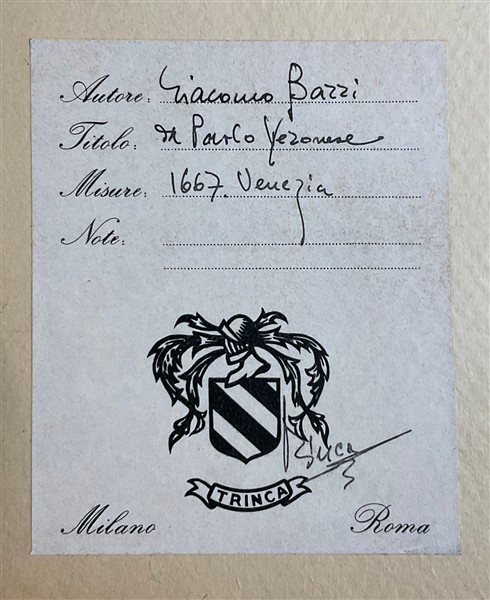 Autore: Giacomo Barri
Titolo: da Paolo Veronese
Misure: 1667. Venezia
Note:
TRINCA
Milano Roma